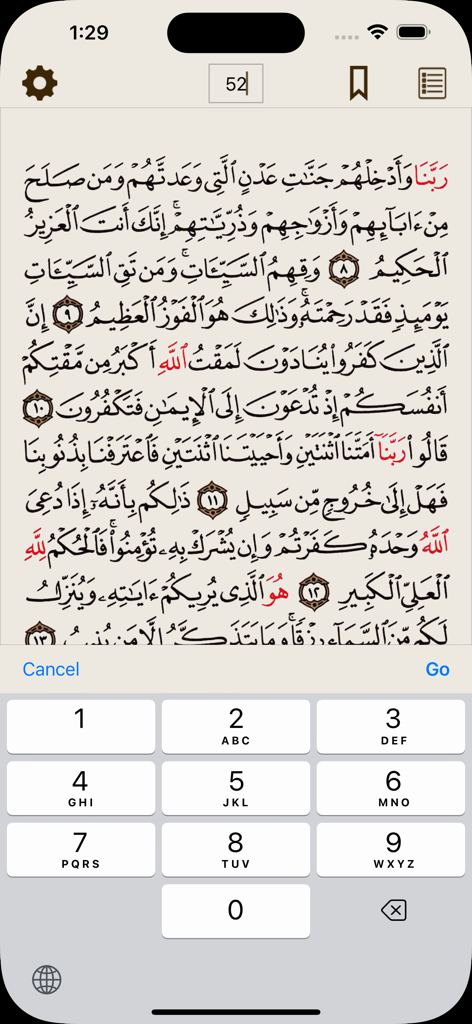 1:29
52
رَبَّنَا وَأَدْخِلْهُمْ جَنَّٰتِ عَدْنٍ ٱلَّتِى وَعَدتَّهُمْ وَمَن صَلَحَ
مِنْ ءَابَآئِهِمْ وَأَزْوَٰجِهِمْ وَذُرِّيَّٰتِهِمْ ۚ إِنَّكَ أَنتَ ٱلْعَزِيزُ
ٱلْحَكِيمُ ٨ وَقِهِمُ ٱلسَّيِّـَٔاتِ ۚ وَمَن تَقِ ٱلسَّيِّـَٔاتِ
يَوْمَئِذٍ فَقَدْ رَحِمْتَهُۥ ۚ وَذَٰلِكَ هُوَ ٱلْفَوْزُ ٱلْعَظِيمُ ٩ إِنَّ
ٱلَّذِينَ كَفَرُوا۟ يُنَادَوْنَ لَمَقْتُ ٱللَّهِ أَكْبَرُ مِن مَّقْتِكُمْ
أَنفُسَكُمْ إِذْ تُدْعَوْنَ إِلَى ٱلْإِيمَٰنِ فَتَكْفُرُونَ ١٠
قَالُوا۟ رَبَّنَآ أَمَتَّنَا ٱثْنَتَيْنِ وَأَحْيَيْتَنَا ٱثْنَتَيْنِ فَٱعْتَرَفْنَا بِذُنُوبِنَا
فَهَلْ إِلَىٰ خُرُوجٍ مِّن سَبِيلٍ ١١ ذَٰلِكُم بِأَنَّهُۥٓ إِذَا دُعِىَ
ٱللَّهُ وَحْدَهُۥ كَفَرْتُمْ ۖ وَإِن يُشْرَكْ بِهِۦ تُؤْمِنُوا۟ ۚ فَٱلْحُكْمُ لِلَّهِ
ٱلْعَلِىِّ ٱلْكَبِيرِ ١٢ هُوَ ٱلَّذِى يُرِيكُمْ ءَايَٰتِهِۦ وَيُنَزِّلُ
لَكُم مِّنَ ٱلسَّمَآءِ رِزْقًا ۚ وَمَا يَتَذَكَّرُ إِلَّا مَن يُنِيبُ ١٣
Cancel Go
1 2 3
ABC DEF
4 5 6
GHI JKL MNO
7 8 9
PQRS TUV WXYZ
0